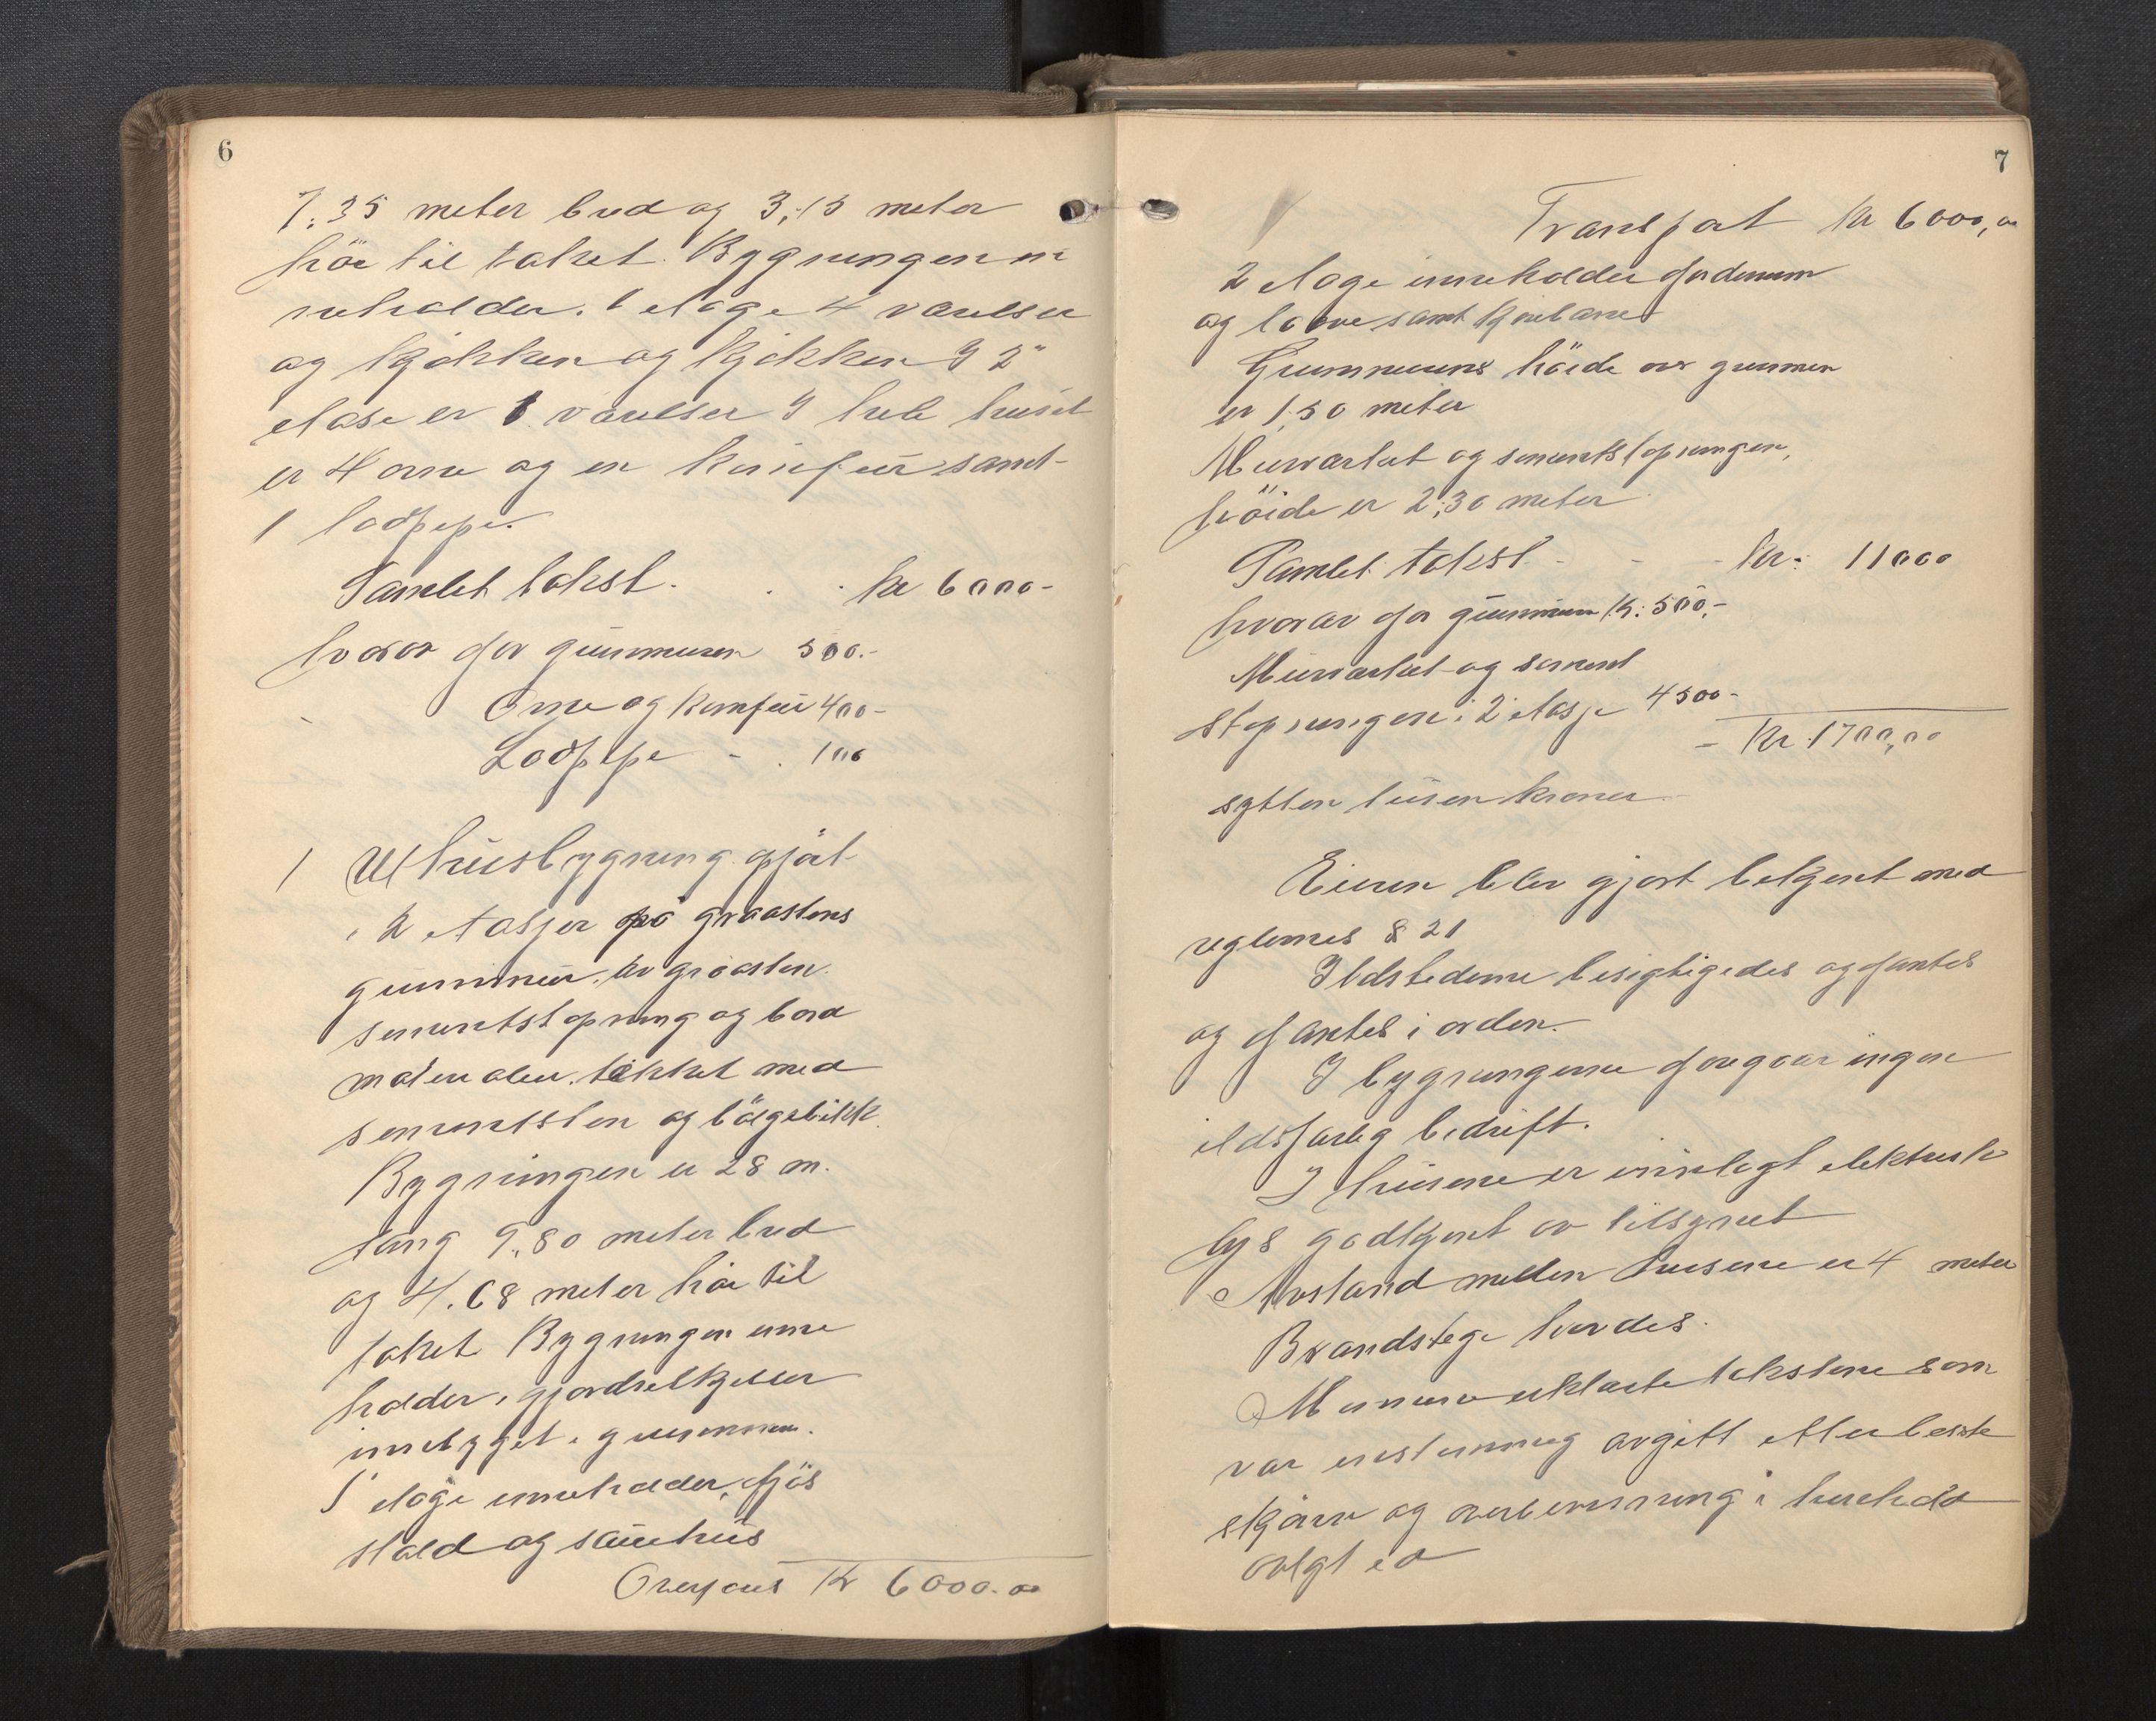 6
7.35 meter bred og 3,15 meter
höi til taket. Bygningen in
neholder. 1 etage 4 værelser
og kjökken og kjökken I 2"
etase er 1 værelser I hele huset
er 4 ovne og en komfur samt
1 lodpipe.
Samlet takst. . . kr 6000-
hvorav for grunmuren 500.-
Ovne og komfur 400-
Lodpipe - . 100
1 Uthusbygning opfört
i 2 etasjer på graastens
grunmur. av graasten.
sementstöpning og bord
materialer. tækket med
sementsten og bölgeblikk.
Bygningen er 28 m.
lang 9,80 meter bred
og 4.68 meter höi til
taket Bygningen inne
holder. gjødselkjeller
innbygget i grunmuren.
1 etage inneholder fjös
stald og sauehus
Overføres Kr 6000.00
7
Transport kr 6000,00
2 etage inneholder forderum
og laave samt kjörebane
Grunmurens höide over grunnen
er 1,50 meter
Murverket og sementstöpningen,
höide er 2,30 meter
Samlet takst - - - kr. 11000
hvorav for grunmuren Kr: 500,-
Murverket og sement
stöpningen i 2 etasje 4500-
- Kr. 1700,00
sytten tusen kroner.-
Eieren blev gjort bekjent med
reglernes § 21
Ildstederne besigtigedes og fantes
og fantes i orden.
I bygningerne foregaar ingen
ildsfarlig bedrift.
I husene er innlagt elektrisk
lys godkjent av tilsynet
Avstand mellem husene er 4 meter
Brandstige havdes.
Mennene erklærte takstene som
var enstemmig avgitt efter beste
skjönn og overbevisning i henhold
avlgt ed